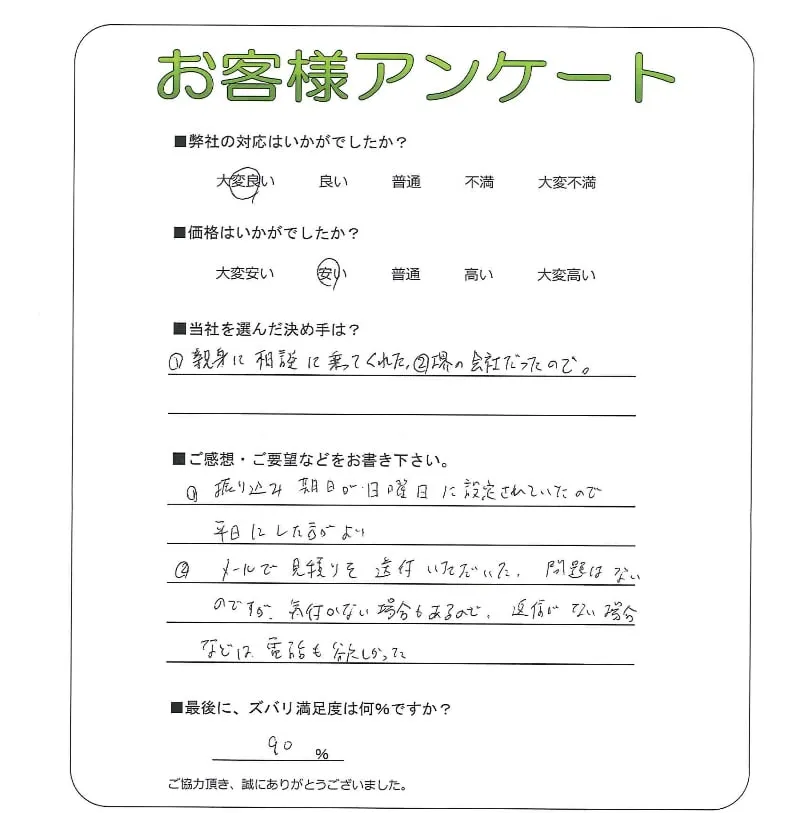 お客様アンケート
■弊社の対応はいかがでしたか？
大変良い 良い 普通 不満 大変不満
■価格はいかがでしたか？
大変安い 安い 普通 高い 大変高い
■当社を選んだ決め手は？
①親身に相談に乗ってくれた。②堺の会社だったので。
■ご感想・ご要望などをお書き下さい。
① 振り込み期日が日曜日に設定されていたので
平日にした方がよい
② メールで見積りを送付いただいた。問題はない
のですが、気付かない場合もあるので、返信がない場合
などは電話も欲しかった
■最後に、ズバリ満足度は何％ですか？
90 ％
ご協力頂き、誠にありがとうございました。